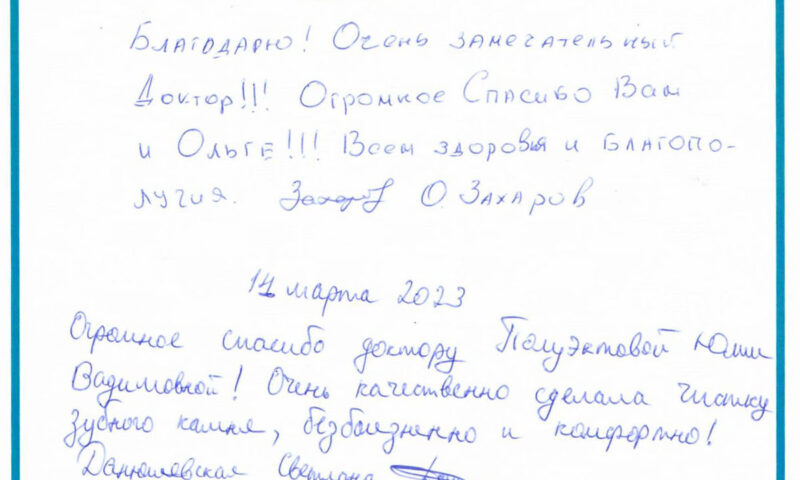 Благодарю! Очень замечательный
Доктор!!! Огромное Спасибо Вам
и Ольге!!! Всем здоровья и благопо-
лучия. О. Захаров
14 марта 2023
Огромное спасибо доктору Полуэктовой Юлии
Вадимовной! Очень качественно сделала чистку
зубного камня, безболезненно и комфортно!
Данюшевская Светлана